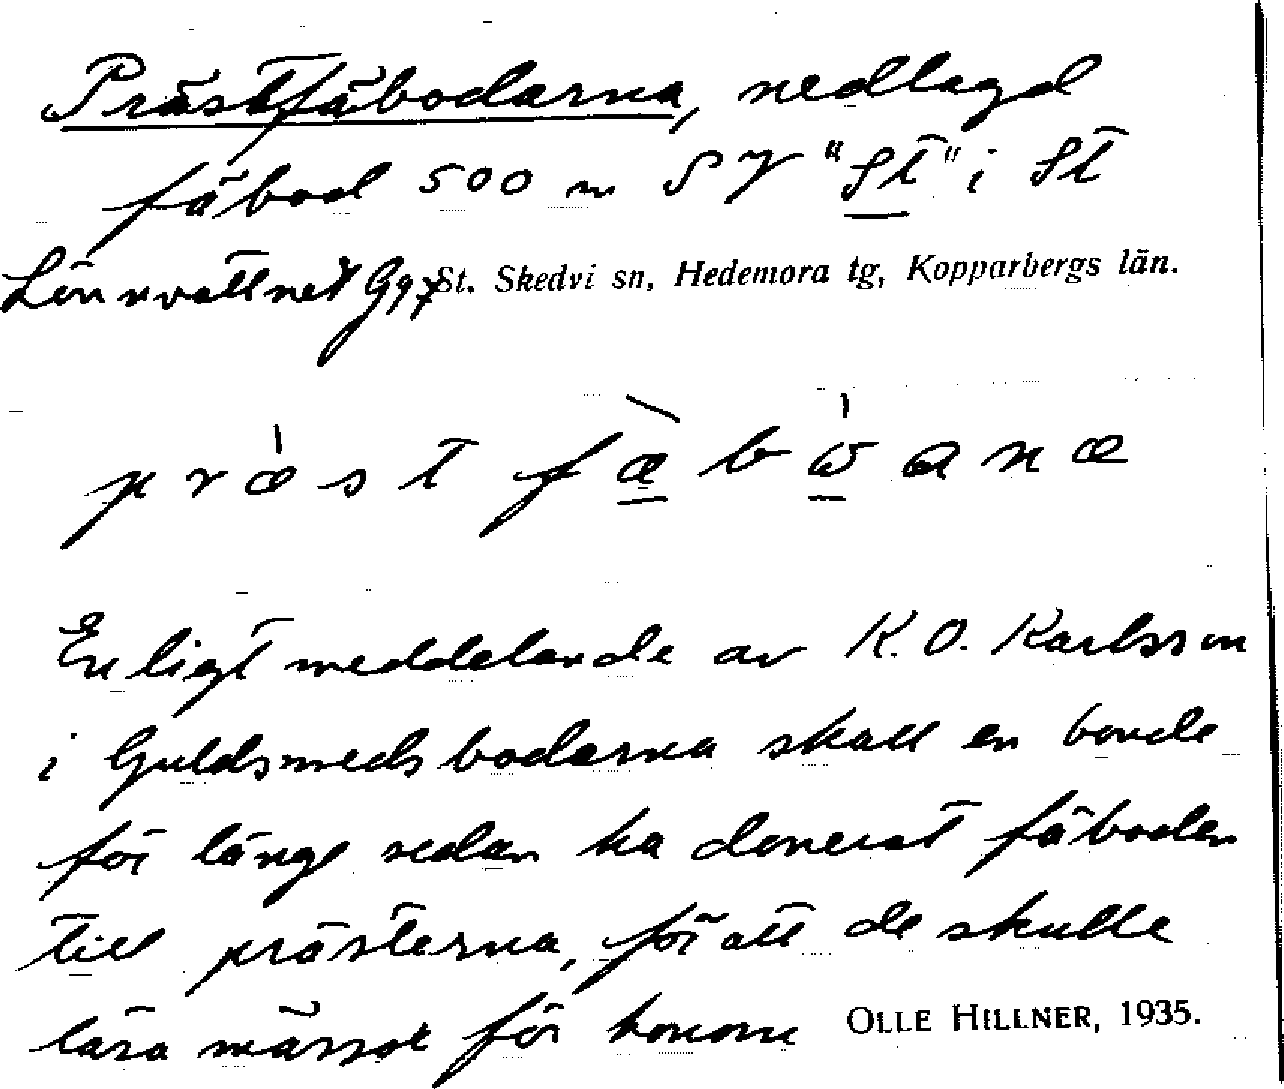 Prästfäbodarna, nedlagd
fäbod 500 m SV "St" i St
Lönnvattnet Gg7 St. Skedvi sn, Hedemora tg, Kopparbergs län.
præst fæbωana
Enligt meddelande av K.O. Karlsson
i Guldsmedsbodarna skall en bonde
för länge sedan ha donerat fäboden
till prästerna, för att de skulle
läsa mässor för honom OLLE HILLNER, 1935.